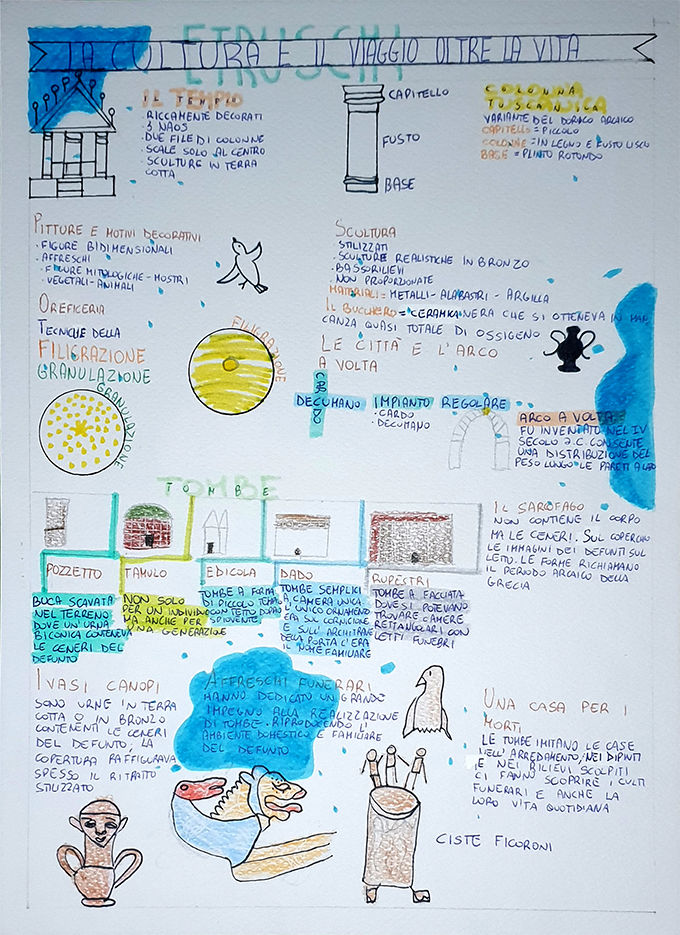 ETRUSCHI
LA CULTURA E IL VIAGGIO OLTRE LA VITA
IL TEMPIO
· RICCAMENTE DECORATI
· 3 NAOS
· DUE FILE DI COLONNE
· SCALE SOLO AL CENTRO
· SCULTURE IN TERRA
COTTA
CAPITELLO
FUSTO
BASE
COLONNA
TUSCANICA
VARIANTE DEL DORICO ARCAICO
CAPITELLO = PICCOLO
COLONNE = IN LEGNO E FUSTO LISCIO
BASE = PLINTO ROTONDO
PITTURE E MOTIVI DECORATIVI
· FIGURE BIDIMENSIONALI
· AFFRESCHI
· FIGURE MITOLOGICHE - MOSTRI
· VEGETALI - ANIMALI
SCULTURA
STILIZZATI
· SCULTURE REALISTICHE IN BRONZO
· BASSORILIEVI
NON PROPORZIONATE
MATERIALI = METALLI - ALABASTRI - ARGILLA
IL BUCCHERO = CERAMIKA NERA CHE SI OTTENEVA IN MAN
CANZA QUASI TOTALE DI OSSIGENO
OREFICERIA
TECNICHE DELLA
FILIGRAZIONE
GRANULAZIONE
FILIGRAZIONE
GRANULAZIONE
LE CITTÀ E L'ARCO
A VOLTA
CARDO
DECUMANO
IMPIANTO REGOLARE
· CARDO
· DECUMANO
ARCO A VOLTA
FU INVENTATO NEL IV
SECOLO a.C. CONSENTE
UNA DISTRIBUZIONE DEL
PESO LUNGO LE PARETI
TOMBE
TOMBE
POZZETTO
TAMULO
EDICOLA
DADO
RUPESTRI
BUCA SCAVATA
NEL TERRENO
DOVE UN'URNA
BICONICA CONTENEVA
LE CENERI DEL
DEFUNTO
NON SOLO
PER UN INDIVIDUO
MA ANCHE PER
UNA GENERAZIONE
TOMBE A FORMA
DI PICCOLO TEMPIO
CON TETTO DOPPIO
SPIOVENTE
TOMBE SEMPLICI
A CAMERA UNICA
L'UNICO ORNAMENTO
ERA SUL CORNICIONE
E SULL'ARCHITRAVE
DELLA PORTA C'ERA
IL NOME FAMILIARE
TOMBE A FACCIATA
DOVE SI POTEVANO
TROVARE CAMERE
RETTANGOLARI CON
LETTI FUNEBRI
IL SAROFAGO
NON CONTIENE IL CORPO
MA LE CENERI. SUL COPERCHIO
LE IMMAGINI DEI DEFUNTI SUL
LETTO. LE FORME RICHIAMANO
IL PERIODO ARCAICO DELLA
GRECIA
I VASI CANOPI
SONO URNE IN TERRA
COTTA O IN BRONZO
CONTENENTI LE CENERI
DEL DEFUNTO, LA
COPERTURA RAFFIGURAVA
SPESSO IL RITRATTO
STILIZZATO
AFFRESCHI FUNERARI
HANNO DEDICATO UN GRANDE
IMPEGNO ALLA REALIZZAZIONE
DI TOMBE. RIPRODUCENDO L'
AMBIENTE DOMESTICO E FAMILIARE
DEL DEFUNTO
UNA CASA PER I
MORTI
LE TOMBE IMITANO LE CASE
NELL'ARREDAMENTO, NEI DIPINTI
E NEI RILIEVI SCOLPITI
CI FANNO SCOPRIRE I CULTI
FUNERARI E ANCHE LA
LORO VITA QUOTIDIANA
CISTE FICORONI